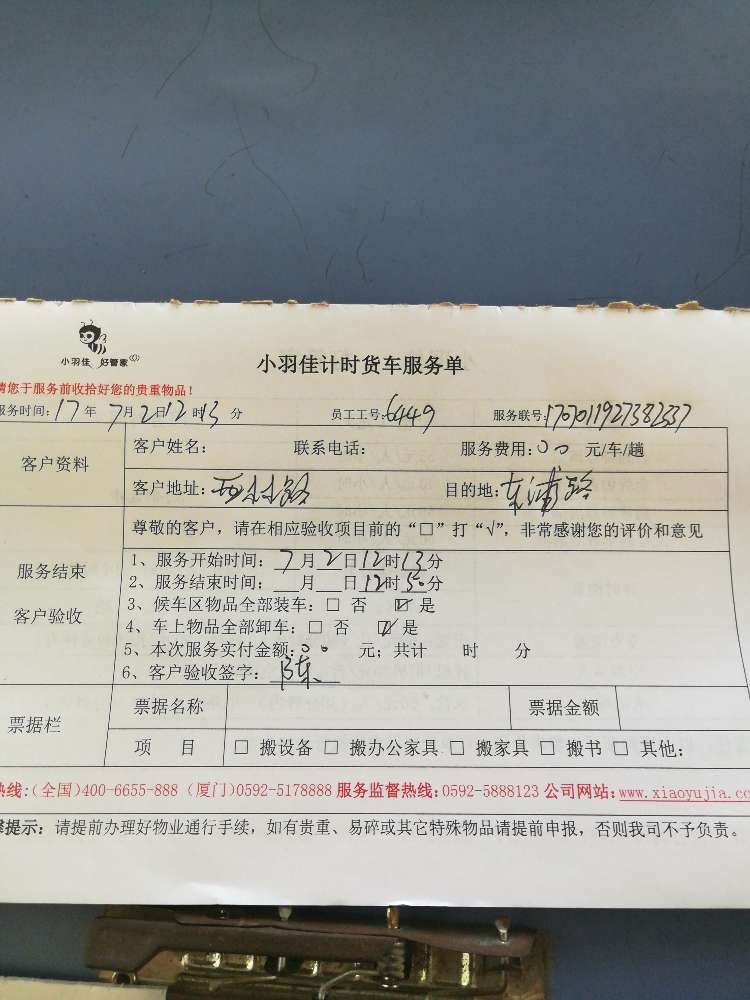 小羽佳 好管家
小羽佳计时货车服务单
请您于服务前收拾好您的贵重物品！
服务时间：17年7月2日12时13分 员工工号：6449 服务联号：1707011927382337
客户资料
客户姓名： 联系电话： 服务费用：00 元/车/趟
客户地址：西林路 目的地：东浦路
尊敬的客户，请在相应验收项目前的“□”打“√”，非常感谢您的评价和意见
服务结束
客户验收
1、服务开始时间：7月2日12时13分
2、服务结束时间： 月 日12时50分
3、候车区物品全部装车：□ 否 ☑ 是
4、车上物品全部卸车：□ 否 ☑ 是
5、本次服务实付金额：00 元；共计 时 分
6、客户验收签字：陈
票据栏
票据名称 票据金额
项 目 □ 搬设备 □ 搬办公家具 □ 搬家具 □ 搬书 □ 其他：
热线：(全国)400-6655-888 (厦门)0592-5178888 服务监督热线：0592-5888123 公司网站：www.xiaoyujia.co
提示：请提前办理好物业通行手续，如有贵重、易碎或其它特殊物品请提前申报，否则我司不予负责。